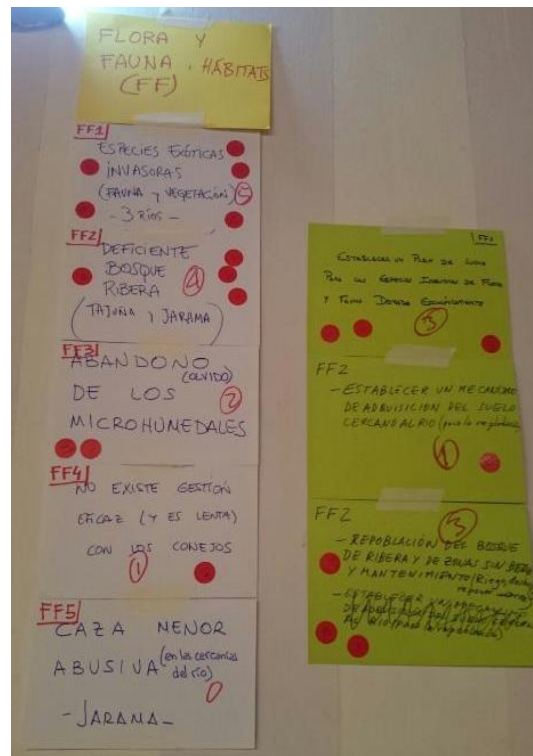 FLORA Y
FAUNA . HÁBITATS
(FF)
FF1
ESPECIES EXÓTICAS
INVASORAS
(FAUNA Y VEGETACIÓN) 5
- 3 RÍOS -
FF2
DEFICIENTE
BOSQUE
RIBERA 4
(TAJUÑA Y JARAMA)
FF3
ABANDONO
(OLVIDO)
DE LOS 2
MICROHUMEDALES
FF4
NO EXISTE GESTIÓN
EFICAZ (Y ES LENTA)
CON LOS CONEJOS
1
FF5
CAZA MENOR
ABUSIVA (en las cercanías
del río)
0
- JARAMA -
FF1
ESTABLECER UN PLAN DE
PARA LAS ESPECIES INVASORAS DE FLORA
Y FAUNA DOTADA ECONÓMICAMENTE
3
FF2
- ESTABLECER UN MECANISMO
DE ADQUISICIÓN DEL SUELO
CERCANO AL RIO (para la
1
FF2
3
- REPOBLACIÓN DEL BOSQUE
DE RIBERA Y DE ZONAS SIN
Y MANTENIMIENTO (Riego,
- ESTABLECER UN